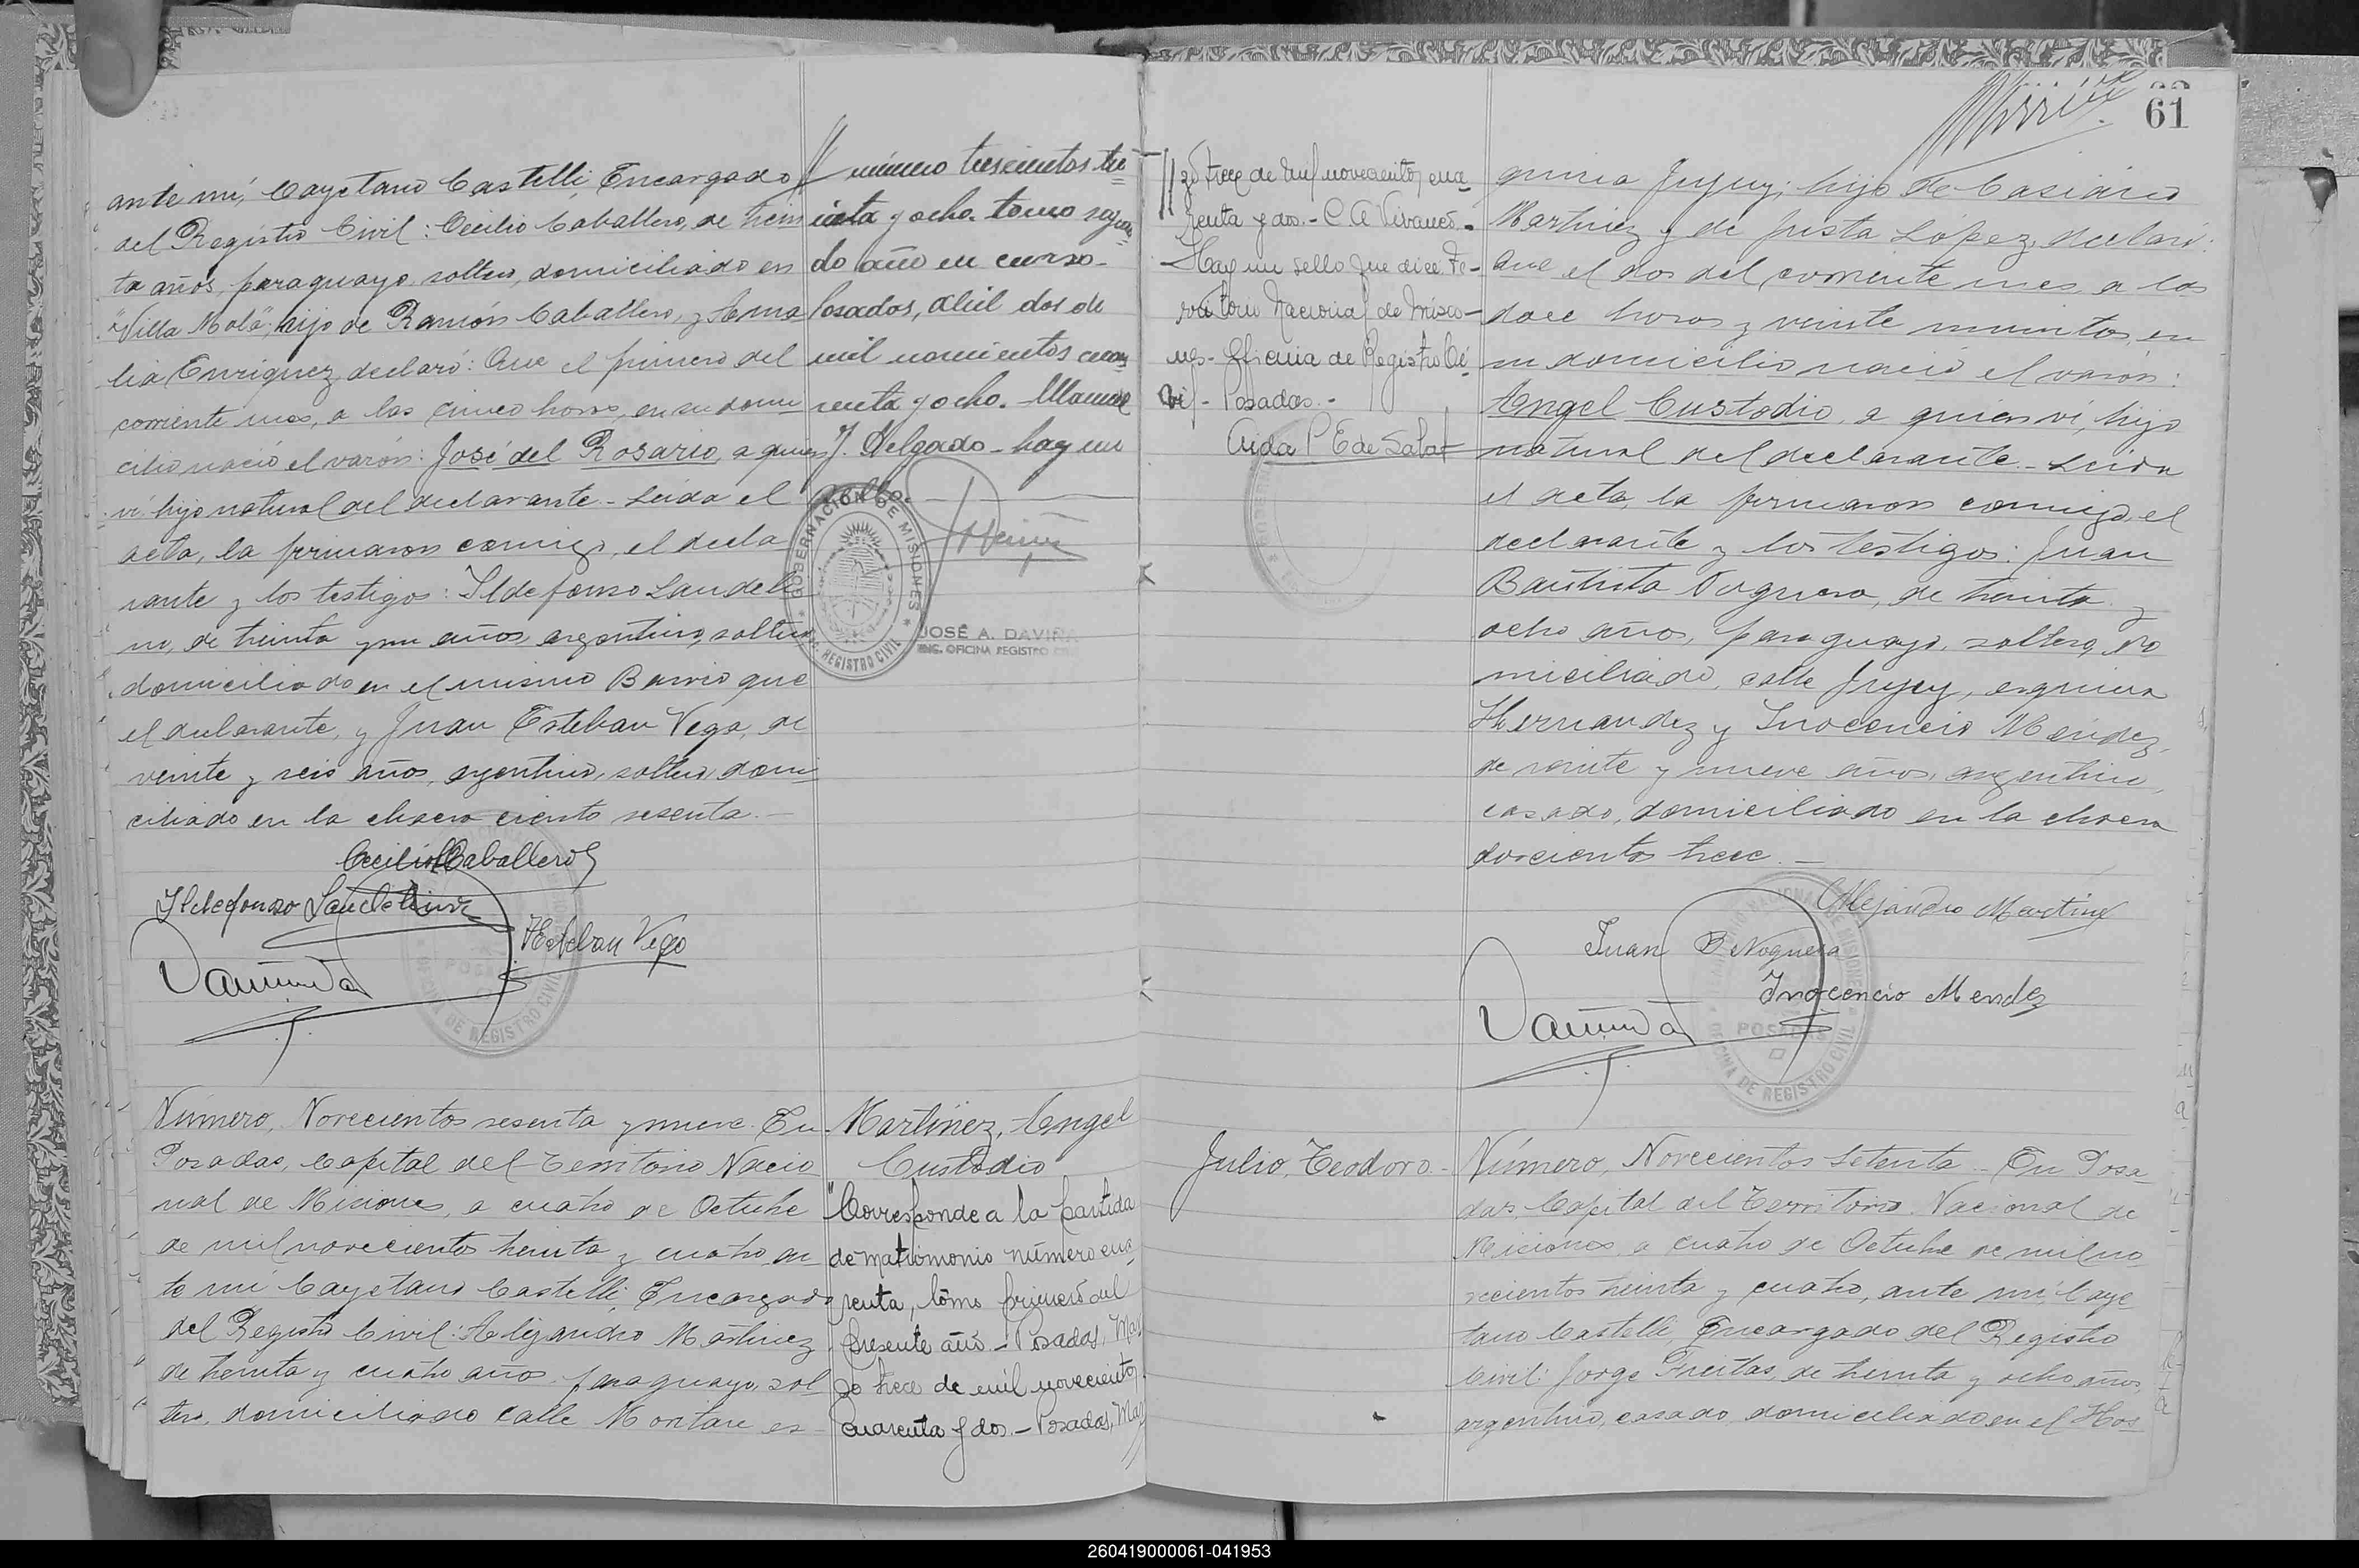 ante mí, Cayetano Castelli, Encargado
del Registro Civil: Cecilio Caballero, de trein
ta años, paraguayo, soltero, domiciliado en
"Villa Mola", hijo de Ramón Caballero, y Ama
lia Enriquez, declaró: Que el primero del
corriente mes, a las cinco horas, en su domi
cilio nació el varón: José del Rosario, a quien
ví, hijo natural del declarante. Leída el
acta, la firmaron conmigo, el decla
rante y los testigos: Ildefonso Landeli
no, de treinta y un años, argentino, soltero
domiciliado en el mismo Barrio que
el declarante, y Juan Esteban Vega, de
veinte y seis años, argentino, soltero, domi
ciliado en la chacra ciento sesenta.-
Cecilio Caballero
Ildefonso Landelino
J Esteban Vega
// número trescientos tre
inta y ocho. tomo segun
do año en curso.
Posadas, abril dos de
mil novecientos cua
renta y ocho. Manuel
J. Delgado - hay un
sello.
GOBERNACION DE MISIONES
REGISTRO CIVIL
JOSÉ A. DAVIÑA
ENC. OFICINA REGISTRO CIVIL
Número, Novecientos sesenta y nueve. En
Posadas, Capital del Territorio Nacio
nal de Misiones, a cuatro de Octubre
de mil novecientos treinta y cuatro, an
te mí Cayetano Castelli, Encargado
del Registro Civil: Alejandro Martinez
de treinta y cuatro años, paraguayo, sol
tero, domiciliado calle Moritan es
Martínez, Angel
Custodio
"Corresponde a la partida
de matrimonio número cua
renta, tomo primero del
presente año. - Posadas, May
zo trece de mil novecientos
cuarenta y dos. - Posadas, May
61
//zo trece de mil novecientos cua
renta y dos. - C A Vivanco. -
Hay un sello que dice: Te-
rritorio Nacional de Misio-
nes - Oficina de Registro Ci
vil - Posadas. -
Aida P E de Sabat
quina Jujuy; hijo de Casiano
Martinez y de Justa López, declaró:
Que el dos del corriente mes a las
doce horas y veinte minutos, en
su domicilio nació el varón:
Angel Custodio, a quien ví, hijo
natural del declarante. Leída
el acta, la firmaron conmigo, el
declarante y los testigos: Juan
Bautista Noguera, de treinta y
ocho años, paraguayo, soltero, do
miciliado, calle Jujuy, esquina
Hernandez y Inocencio Méndez,
de veinte y nueve años, argentino,
casado, domiciliado en la chacra
doscientos trece.-
Alejandro Martinez
Juan B Noguera
Inocencio Mendez
POSADAS
OFICINA DE REGISTRO CIVIL
Julio, Teodoro.
Número, Novecientos setenta - En Posa
das, Capital del Territorio Nacional de
Misiones, a cuatro de Octubre de mil no
vecientos treinta y cuatro, ante mí, Caye
tano Castelli, Encargado del Registro
Civil: Jorge Freitas, de treinta y ocho años,
argentino, casado, domiciliado en el Hos
260419000061-041953